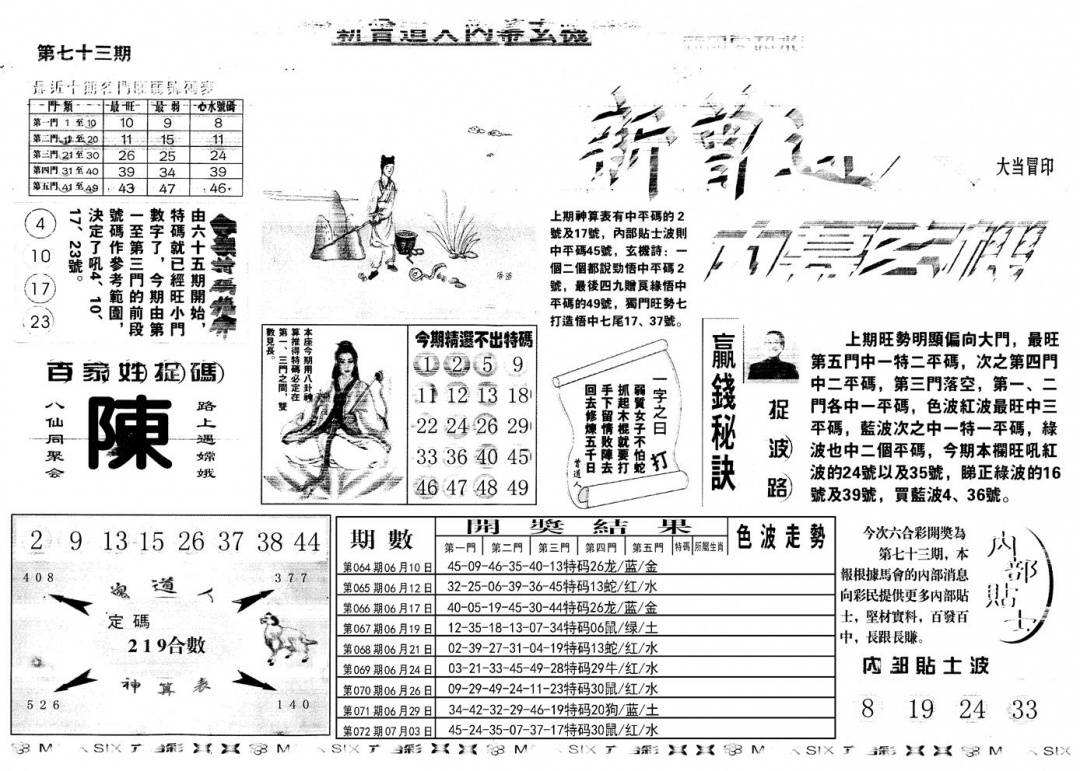 新曾道人內幕玄機
第七十三期
門類 最旺 最弱 心水號碼
第一門 1 至 10 10 9 8
第二門 11 至 20 11 15 11
第三門 21 至 30 26 25 24
第四門 31 至 40 39 34 39
第五門 41 至 49 43 47 46
大当冒印
4
10
17
23
由六十五期開始，
特碼就已經旺小門
數字了，今期由第
一至第三門的前段
號碼作參考範圍，
決定了吼4、10、
17、23號。
上期神算表有中平碼的2
號及17號，內部貼士波則
中平碼45號，玄機詩：一
個二個都說勁悟中平碼2
號，最後四九贈良緣悟中
平碼的49號，獨門旺勢七
打造悟中七尾17、37號。
百家姓捉碼
八仙同聚會
陳
路上遇嫦娥
本座今期用八卦神
算推得特碼必定在
第一、三門之間，雙
數見長。
今期精選不出特碼
1 2 5 9
11 12 13 18
22 24 26 29
33 36 40 45
46 47 48 49
一字之曰
打
弱質女子不怕蛇
抓起木棍就要打
手下留情敗陣去
回去修煉五千日
曾道人
贏錢秘訣
捉波路
上期旺勢明顯偏向大門，最旺
第五門中一特二平碼，次之第四門
中二平碼，第三門落空，第一、二
門各中一平碼，色波紅波最旺中三
平碼，藍波次之中一特一平碼，綠
波也中二個平碼，今期本欄旺吼紅
波的24號以及35號，睇正綠波的16
號及39號，買藍波4、36號。
2 9 13 15 26 37 38 44
408
377
道人
定碼
219合數
神算表
526
140
期數 開獎結果 色波走勢
第一門 第二門 第三門 第四門 第五門 特碼 所屬生肖
第064期06月10日 45-09-46-35-40-13特码26龙/蓝/金
第065期06月12日 32-25-06-39-36-45特码13蛇/红/水
第066期06月17日 40-05-19-45-30-44特码26龙/蓝/金
第067期06月19日 12-35-18-13-07-34特码06鼠/绿/土
第068期06月21日 02-39-27-31-04-19特码13蛇/红/水
第069期06月24日 03-21-33-45-49-28特码29牛/红/水
第070期06月26日 09-29-49-24-11-23特码30鼠/红/水
第071期06月29日 34-42-32-29-46-19特码20狗/蓝/土
第072期07月03日 45-24-35-07-37-17特码30鼠/红/水
今次六合彩開獎為
第七十三期，本
報根據馬會的內部消息
向彩民提供更多內部貼
士，堅材實料，百發百
中，長跟長賺。
內部貼士
內部貼士波
8 19 24 33